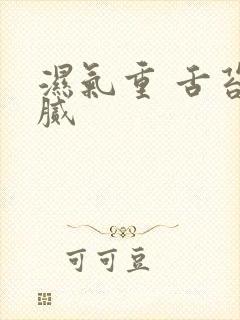 濕氣重 舌苔
膩
可可豆